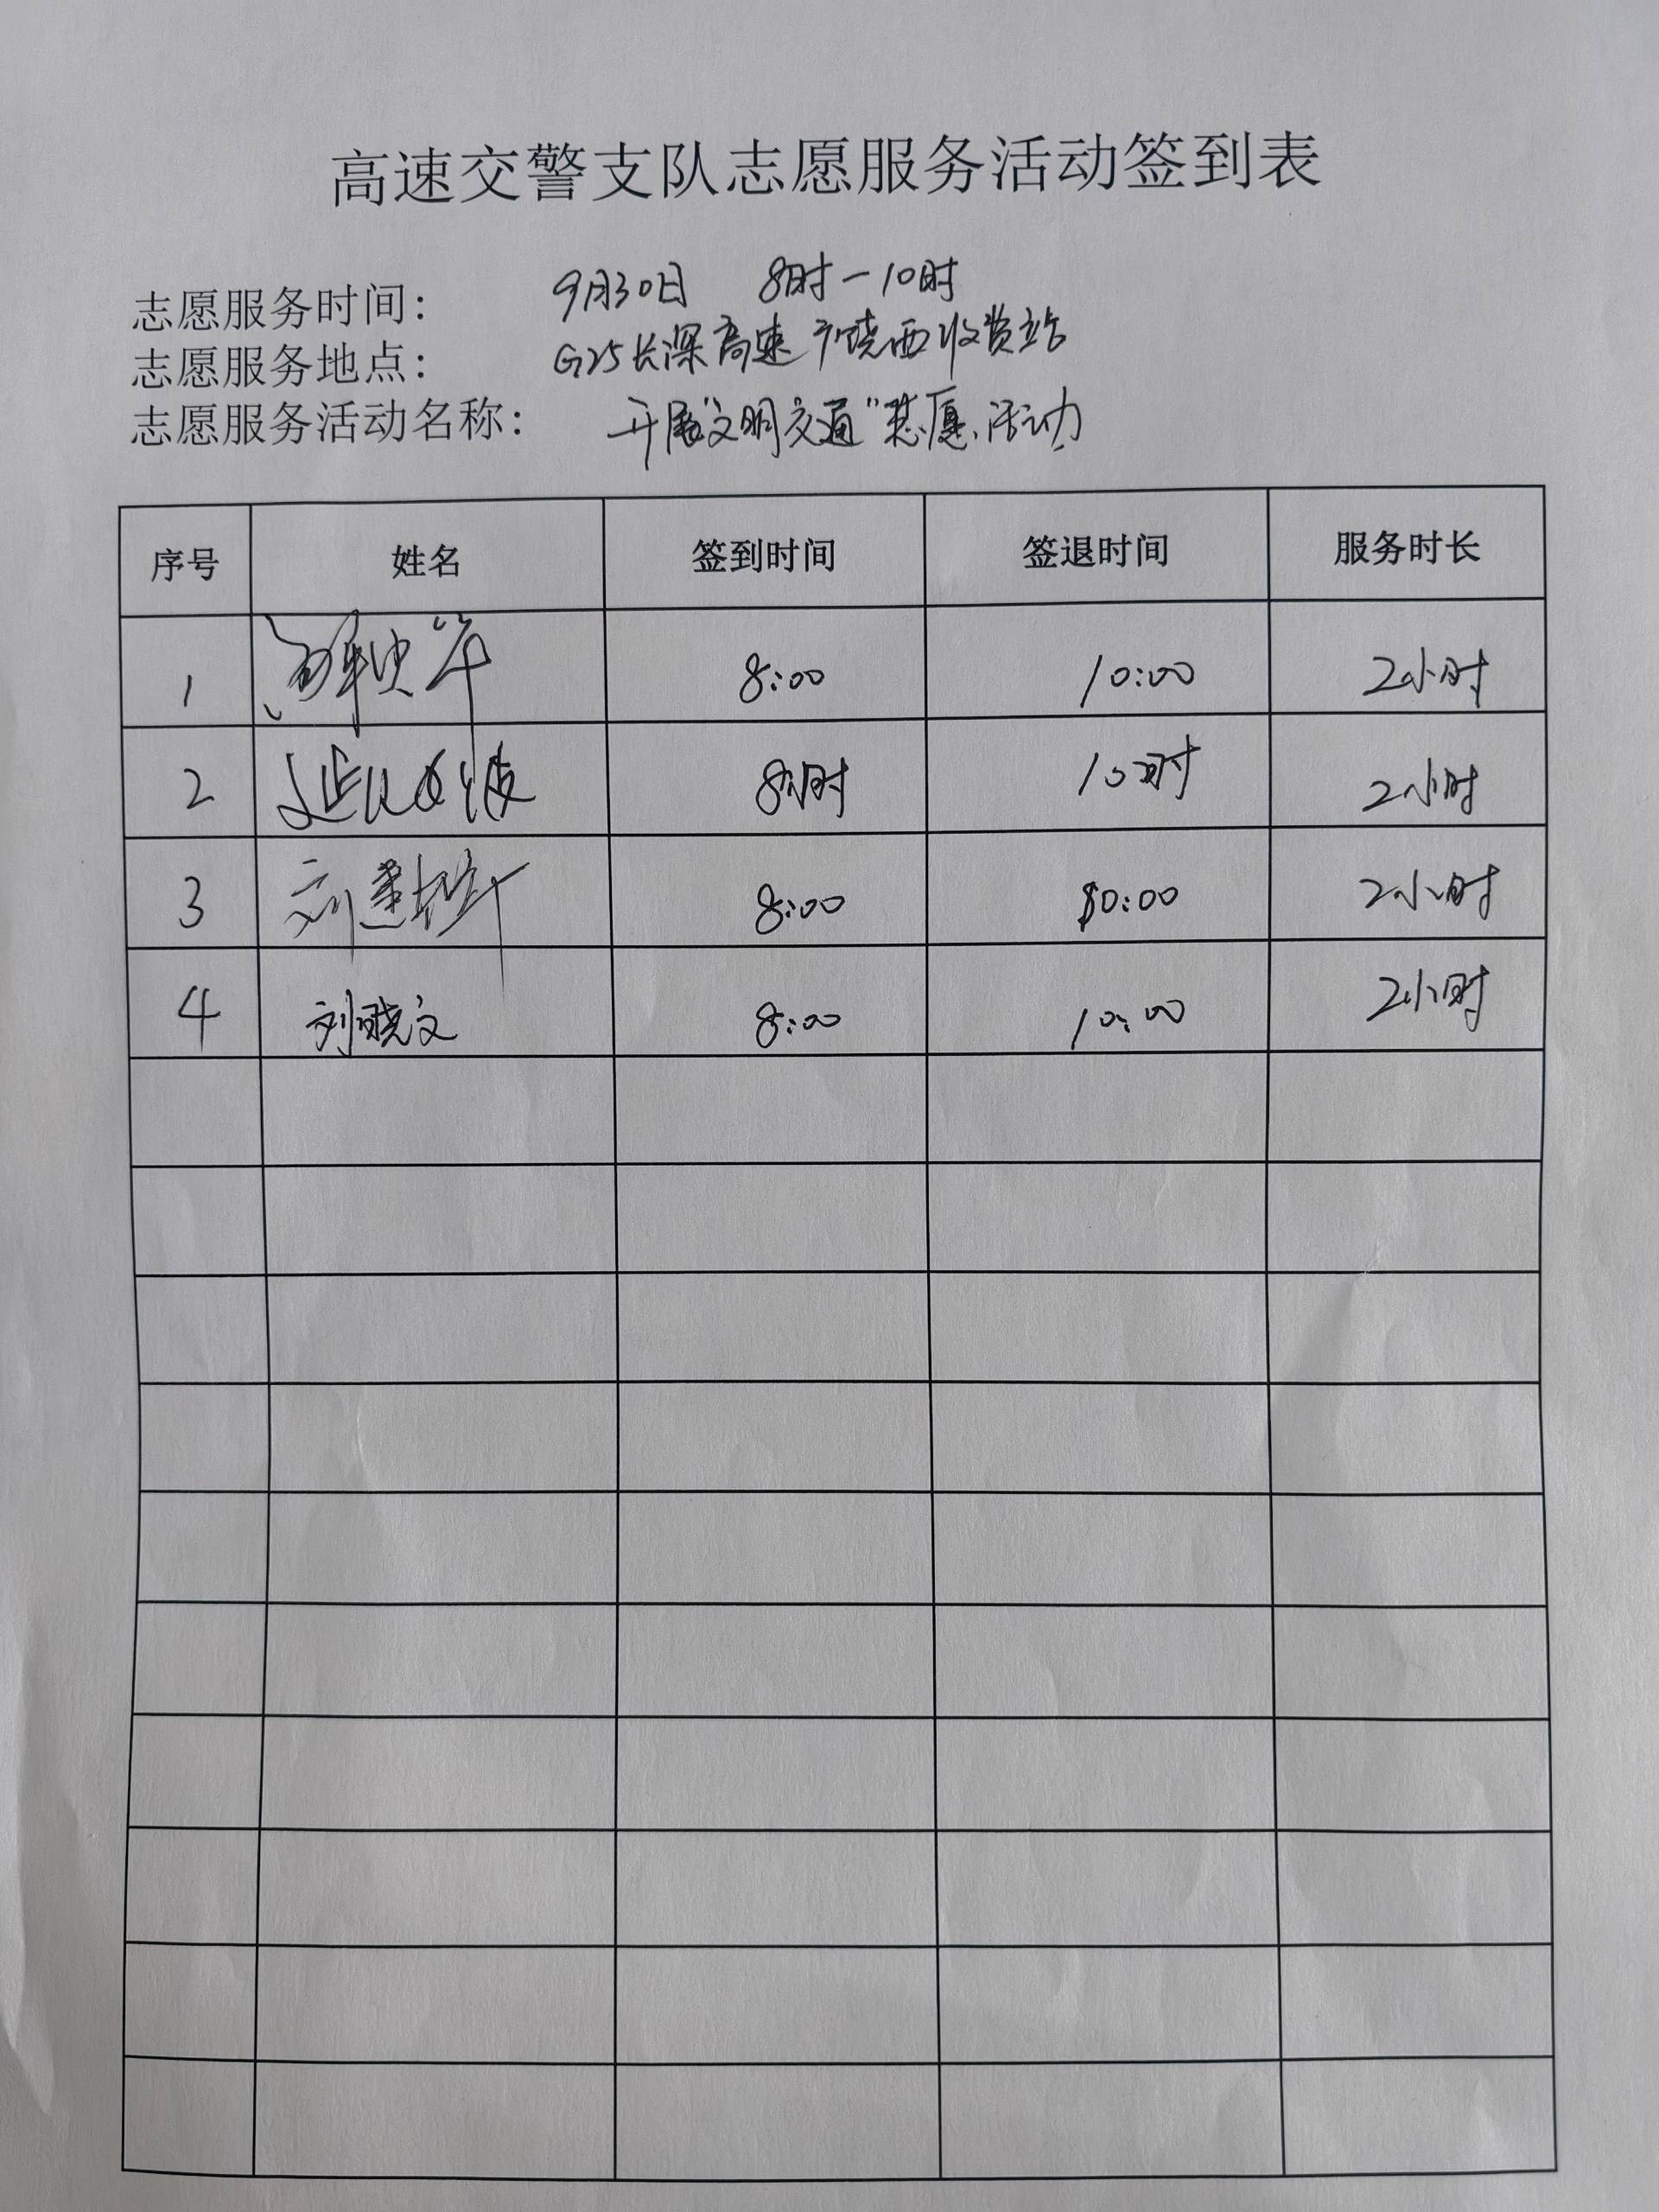 高速交警支队志愿服务活动签到表
志愿服务时间： 9月30日 8时－10时
志愿服务地点： G25长深高速广饶西收费站
志愿服务活动名称： 开展“文明交通”志愿活动
序号 姓名 签到时间 签退时间 服务时长
1 8:00 10:00 2小时
2 8时 10时 2小时
3 刘建 8:00 10:00 2小时
4 刘晓文 8:00 10:00 2小时